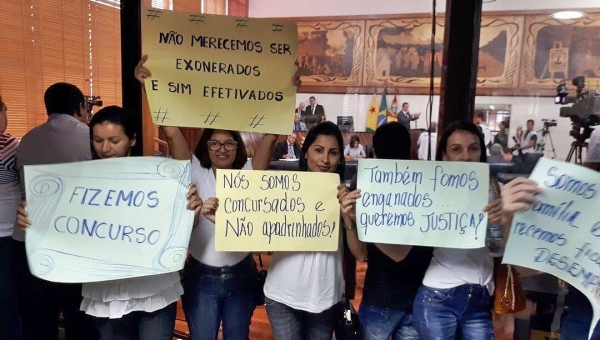 # #
NÃO MERECEMOS SER
EXONERADOS
E SIM EFETIVADOS
# # # #
FIZEMOS
CONCURSO
NÓS SOMOS
CONCURSADOS E
NÃO Apadrinhados!
Também fomos
enganados...
queremos JUSTIÇA?
Somos
família e
recemos
DESEMP